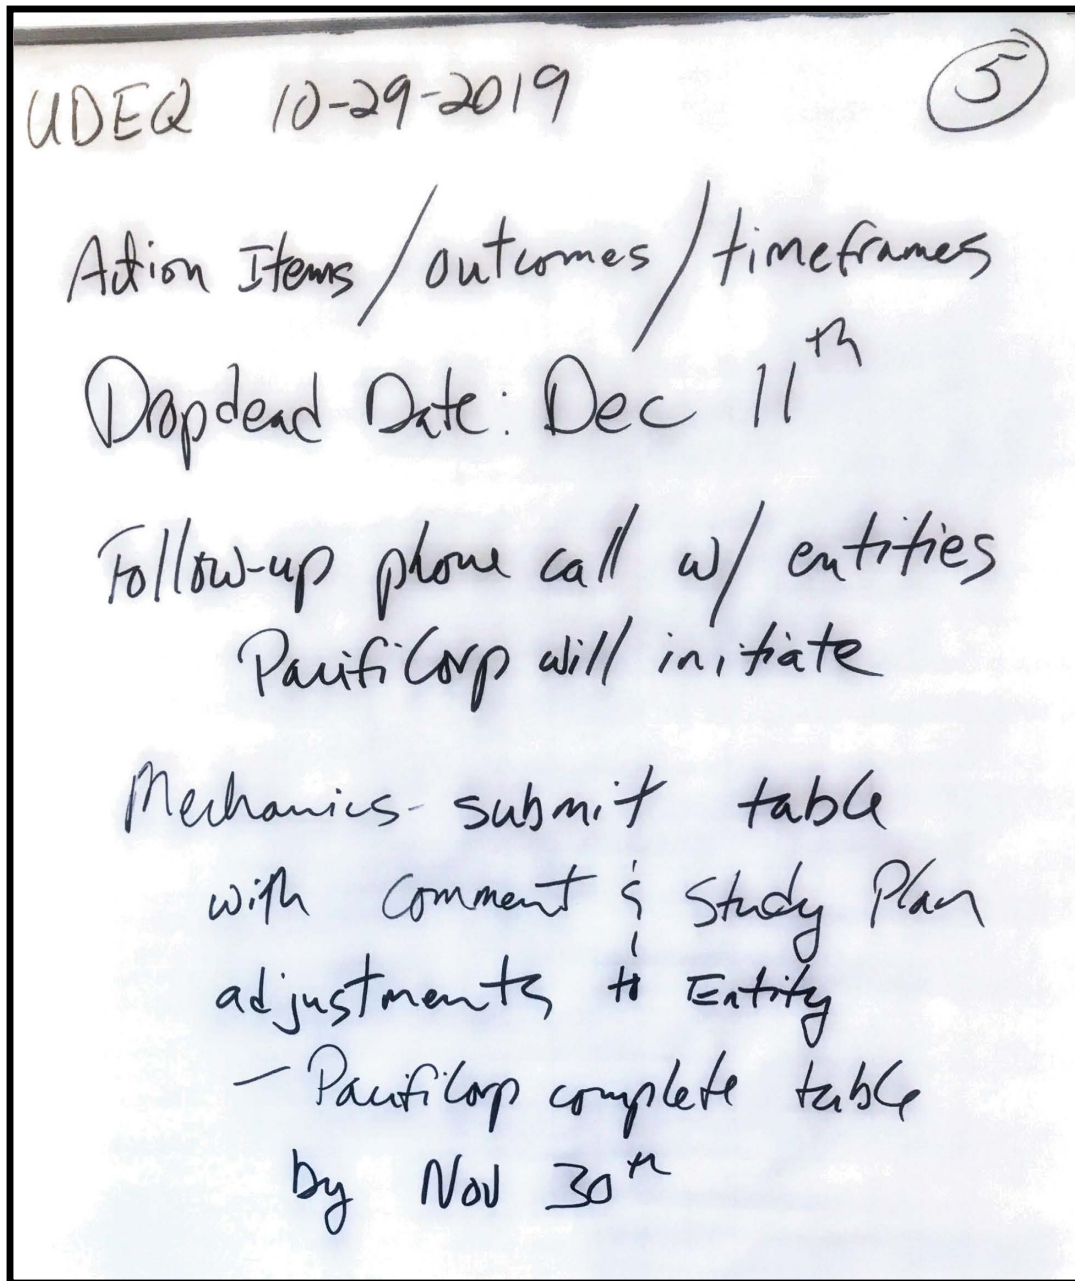 UDEQ 10-29-2019 5
Action Items/outcomes/timeframes
Dropdead Date: Dec 11th
Follow-up phone call w/ entities
PacifiCorp will initiate
Mechanics - submit table
with comment & Study Plan
adjustments to Entity
- PacifiCorp complete table
by Nov 30th